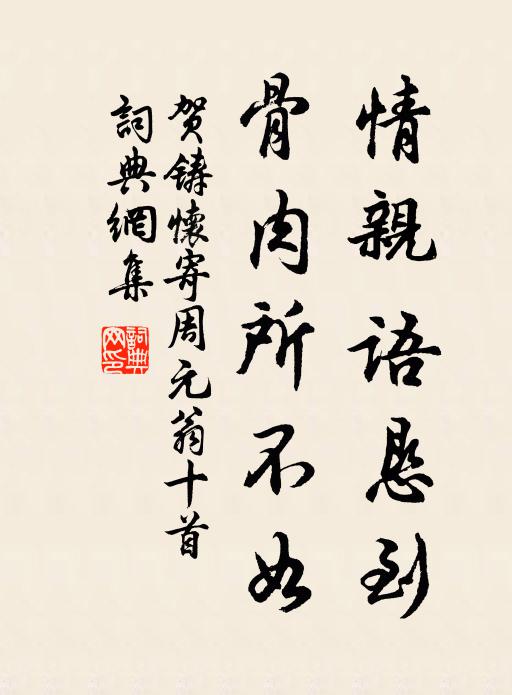 情親語恳到
骨肉所不如
贺鑄懷寄周元翁十首
詞典網集
詞典网印